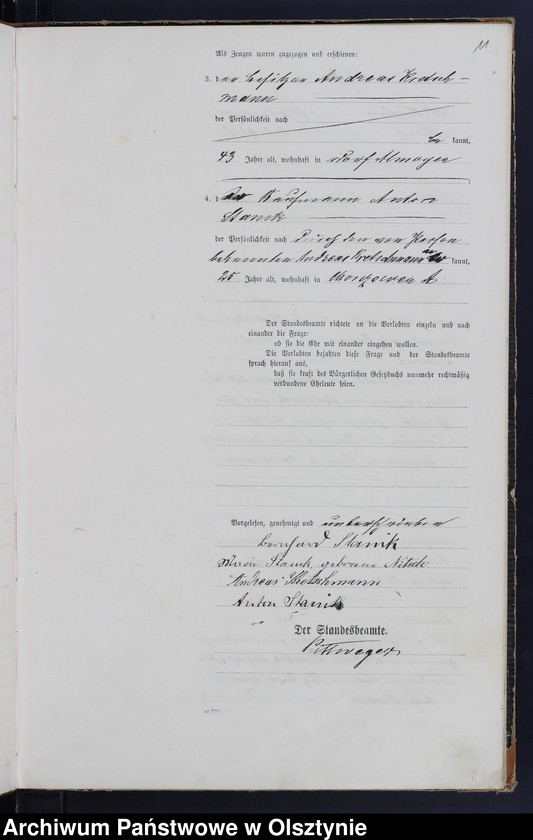 11
Als Zeugen waren zugezogen und erschienen:
3. der Besitzer Andreas Kretsch-
mann
der Persönlichkeit nach
be kannt,
43 Jahre alt, wohnhaft in Dorf Almoyen
4. der Kaufmann Anton
Stanik
der Persönlichkeit nach durch den von Person
bekannten Andreas Kretschmann kannt,
25 Jahre alt, wohnhaft in
Der Standesbeamte richtete an die Verlobten einzeln und nach
einander die Frage:
ob sie die Ehe mit einander eingehen wollen.
Die Verlobten bejahten diese Frage und der Standesbeamte
sprach hierauf aus,
daß sie kraft des Bürgerlichen Gesetzbuchs nunmehr rechtmäßig
verbundene Eheleute seien.
Vorgelesen, genehmigt und unterschrieben
Bernhard Stanik
Maria Stanik, geborene Nitsch
Andreas Kretschmann
Anton Stanik
Der Standesbeamte.
Archiwum Państwowe w Olsztynie